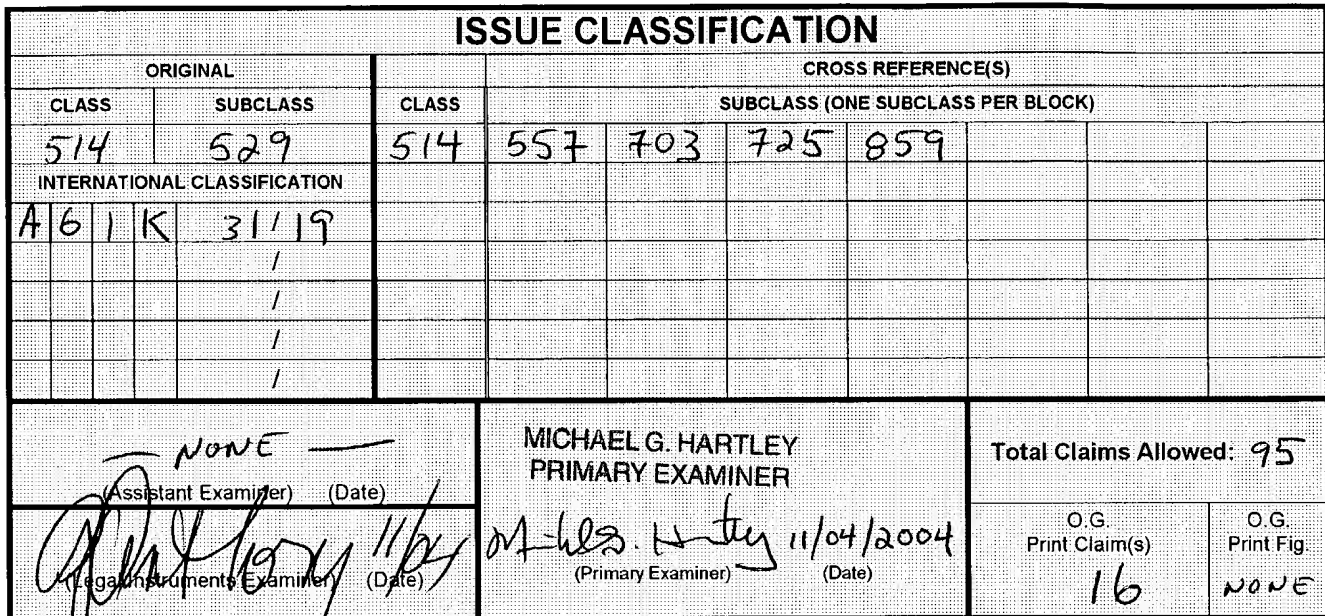 ISSUE CLASSIFICATION
ORIGINAL CROSS REFERENCE(S)
CLASS SUBCLASS CLASS SUBCLASS (ONE SUBCLASS PER BLOCK)
514 529 514 557 703 725 859
INTERNATIONAL CLASSIFICATION
A 6 1 K 31 / 19
/
/
/
/
— NONE —
(Assistant Examiner) (Date)
11/04
(Legal Instruments Examiner) (Date)
MICHAEL G. HARTLEY
PRIMARY EXAMINER
11/04/2004
(Primary Examiner) (Date)
Total Claims Allowed: 95
O.G. Print Claim(s)
16
O.G. Print Fig.
NONE